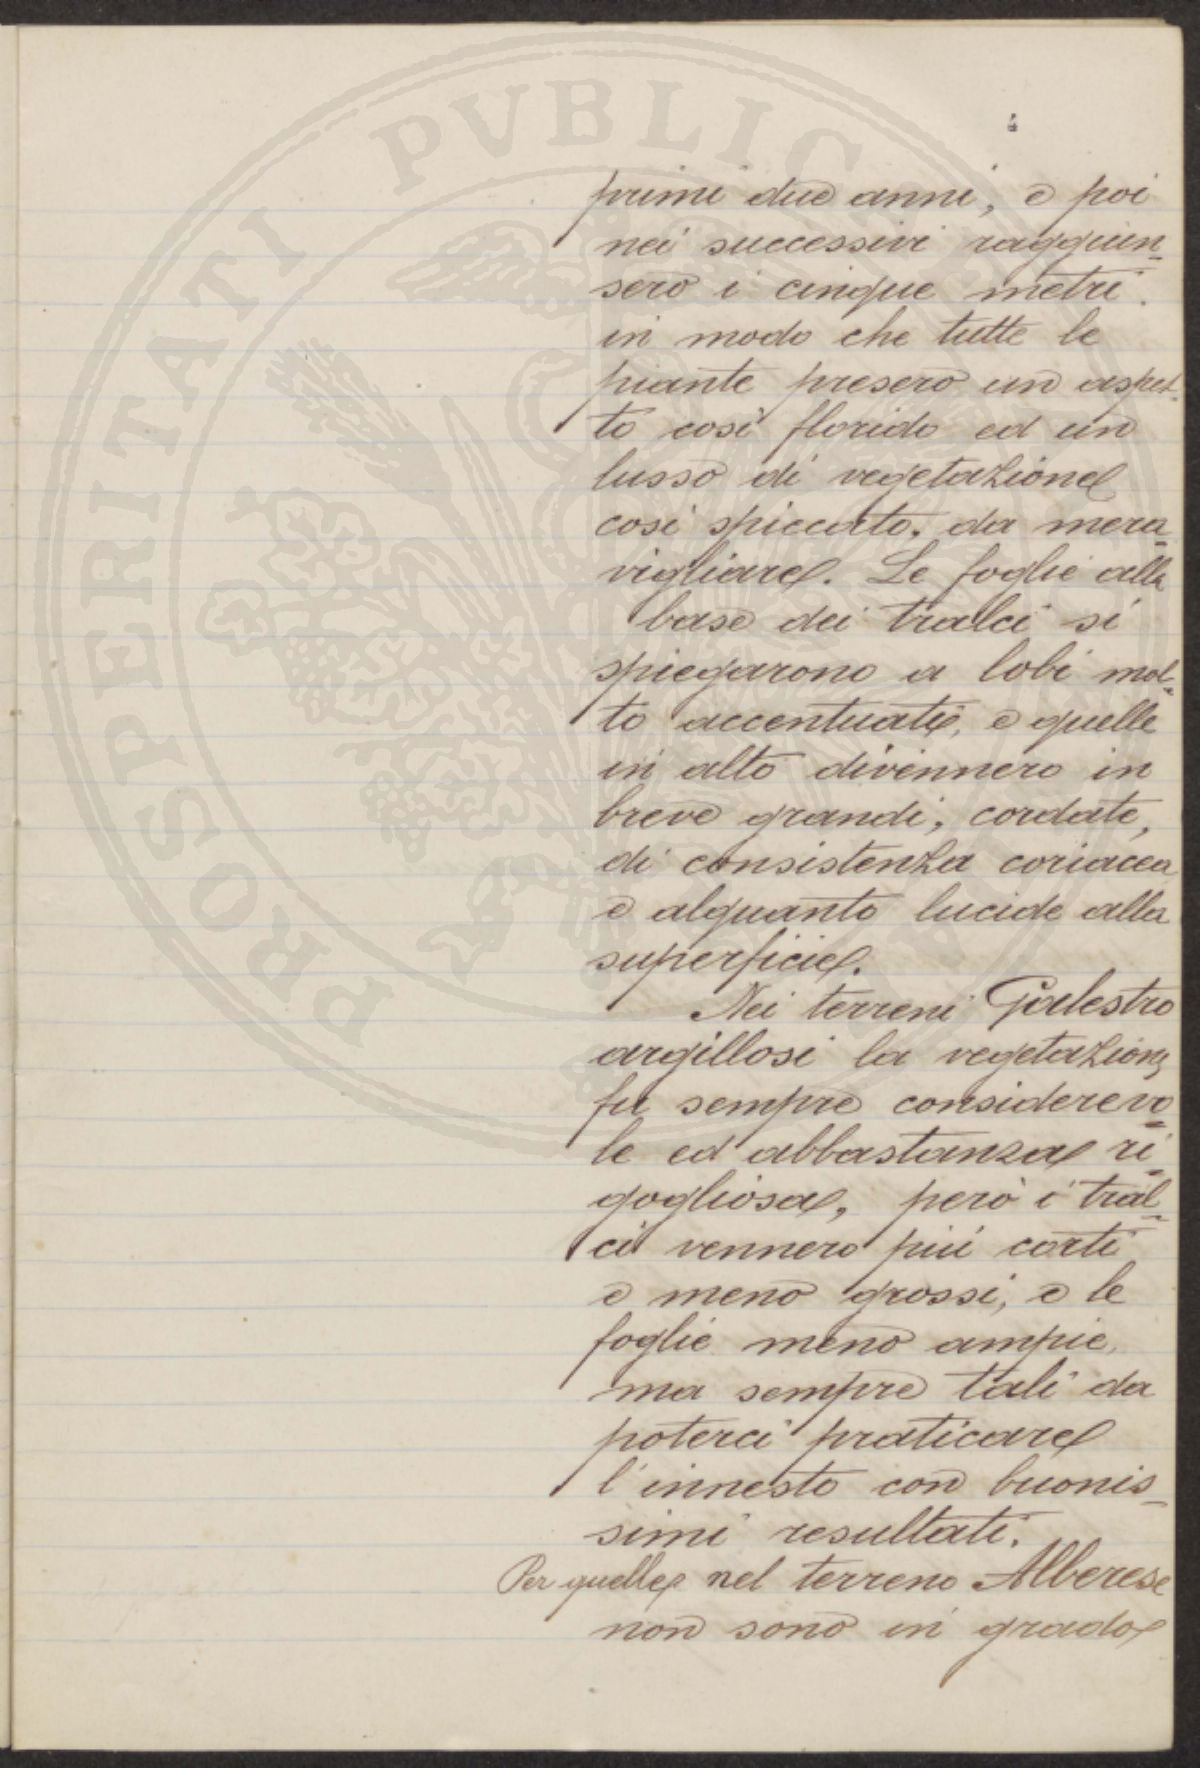 4
primi due anni, e poi
nei successivi raggiun=
sero i cinque metri.
in modo che tutte le
piante presero un aspet=
to così florido ed un
lusso di vegetazione
così spiccato, da mera=
vigliare. Le foglie alla
base dei tralci si
spiegarono a lobi mol=
to accentuati, e quelle
in alto divennero in
breve grandi, cordate,
di consistenza coriacea
e alquanto lucide alla
superficie.
Nei terreni Galestro
argillosi la vegetazione
fu sempre considerevo=
le ed abbastanza ri=
gogliosa, però i tral=
ci vennero più corti
e meno grossi, e le
foglie meno ampie,
ma sempre tali da
poterci praticare
l'innesto con buonis=
simi resultati.
Per quelle nel terreno Alberese
non sono in grado
PUBLICAE
PROSPERITATI